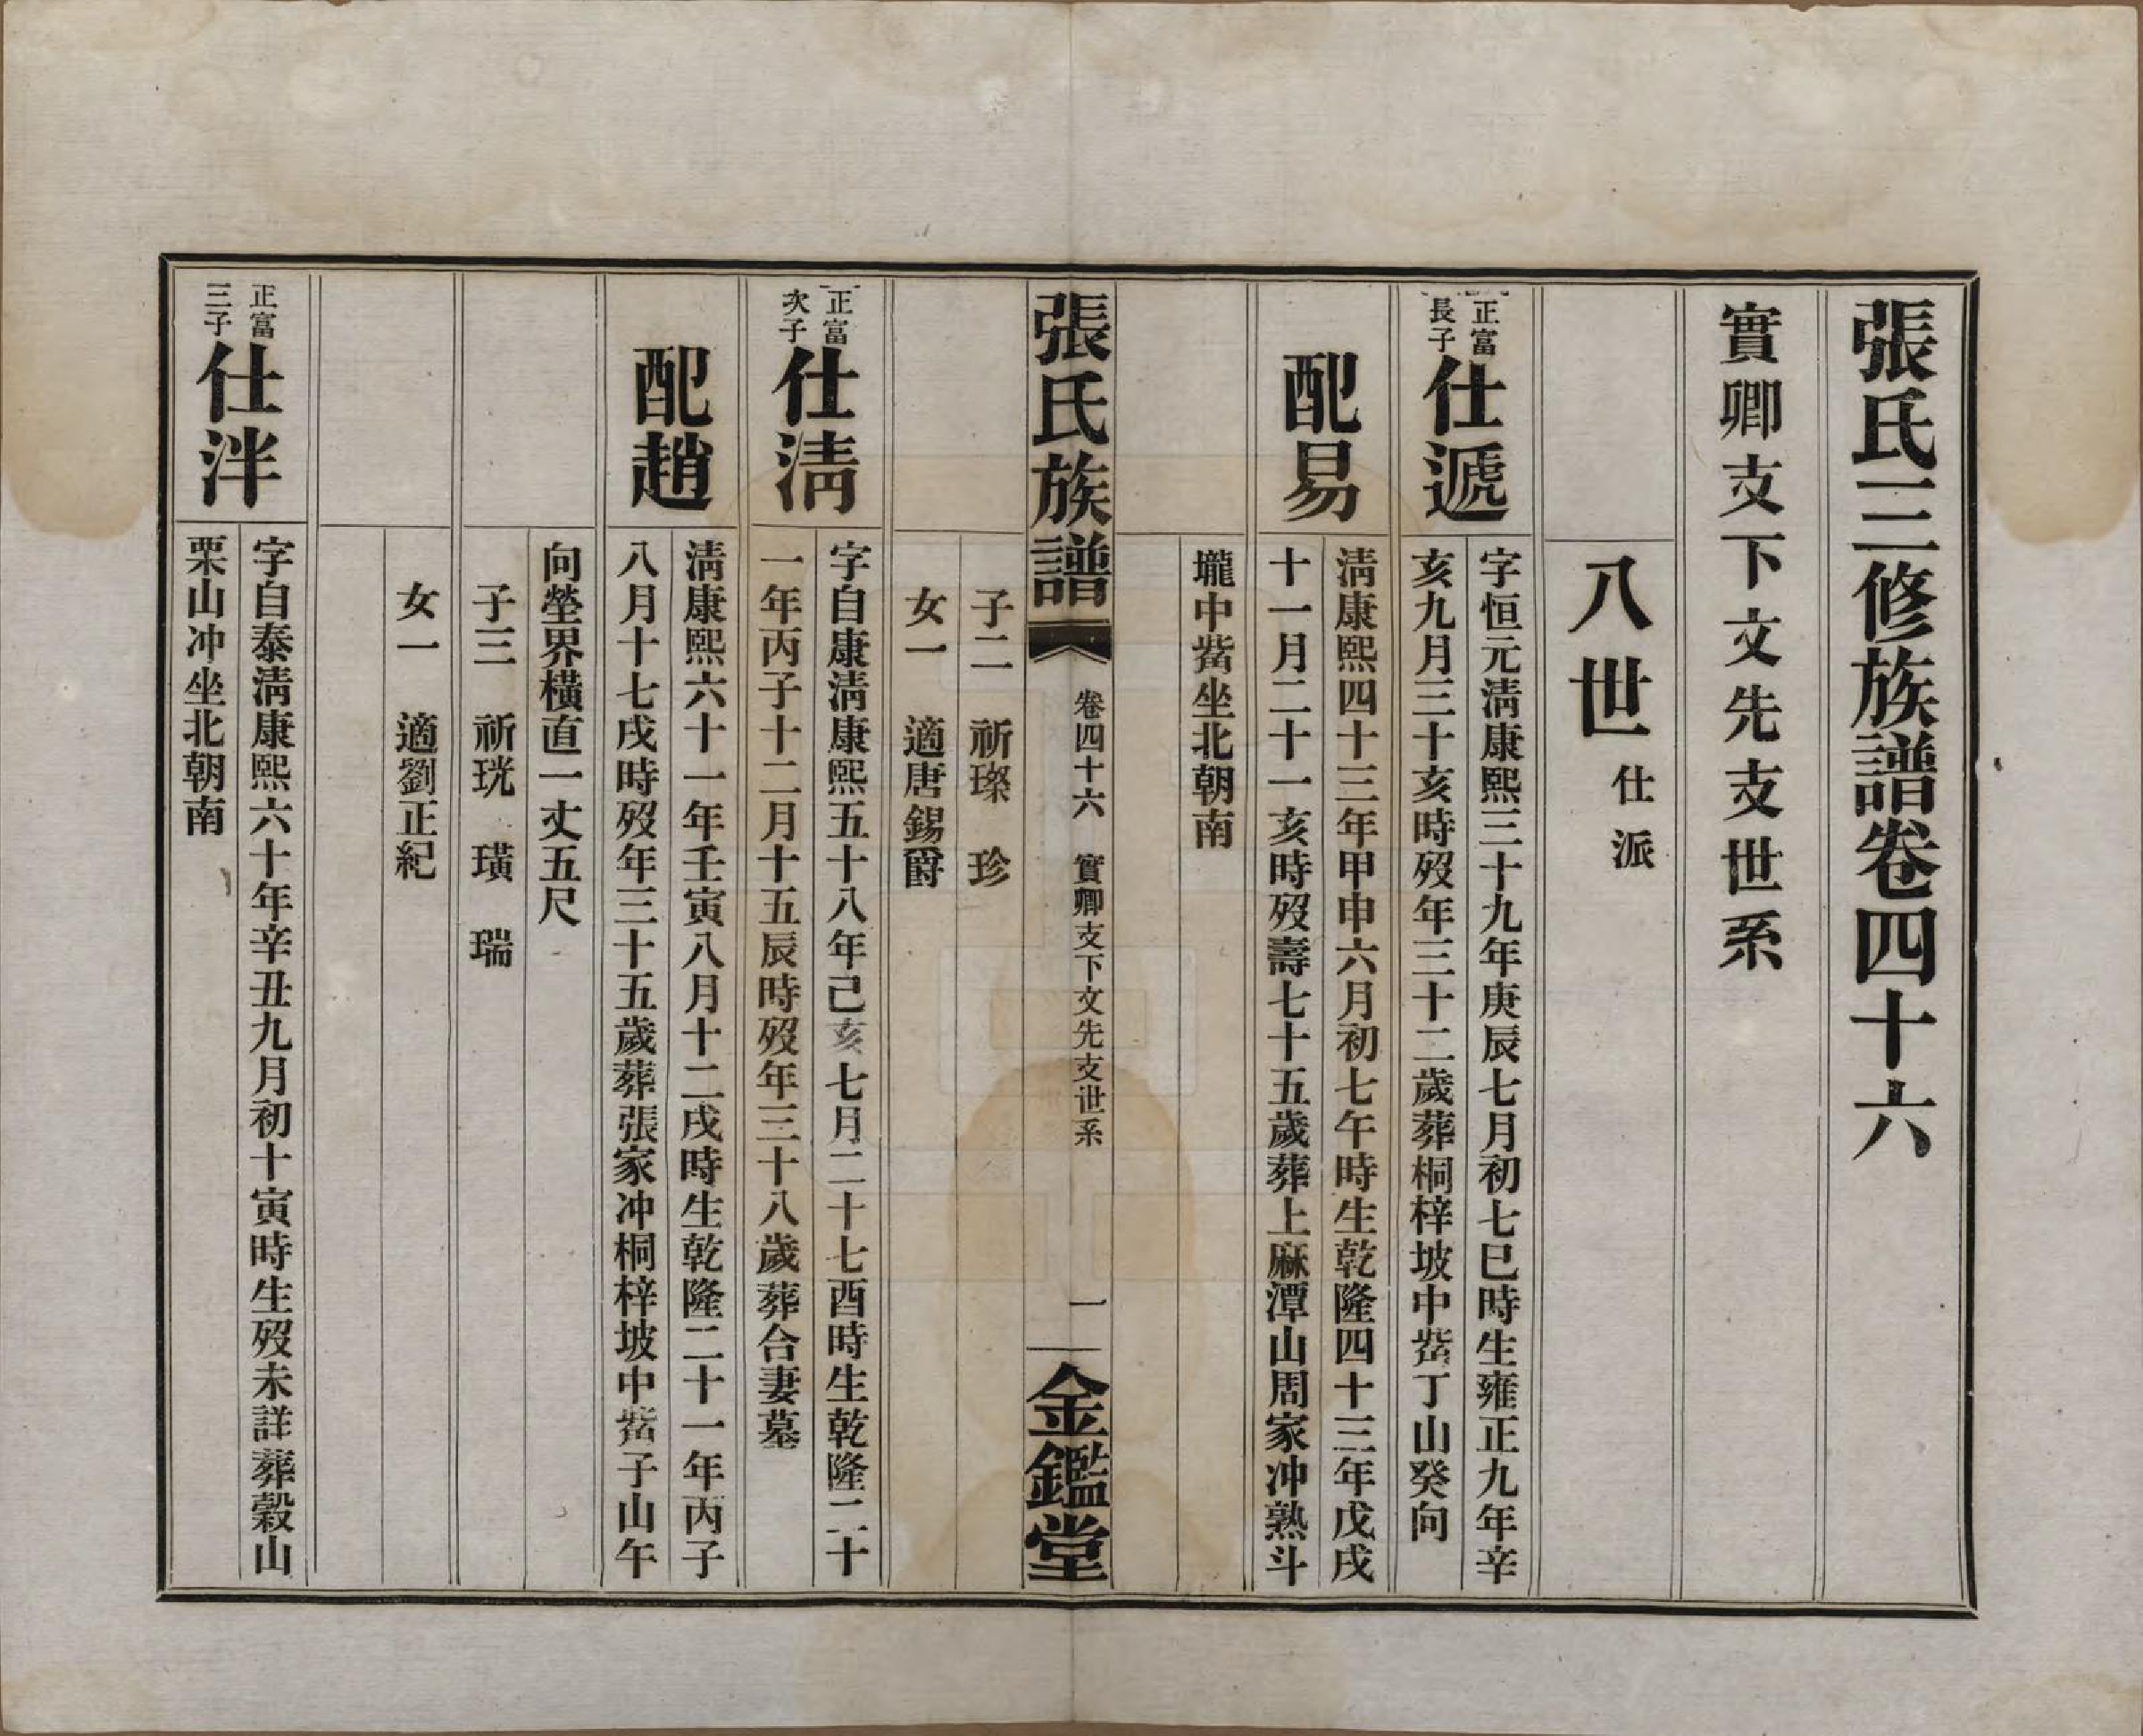 張氏三修族譜卷四十六
實卿支下文先支世系
八世 仕派
正富
長子
仕遞
字恒元淸康熙三十九年庚辰七月初七巳時生雍正九年辛
亥九月三十亥時歿年三十二歲葬桐梓坡中觜丁山癸向
配易
淸康熙四十三年甲申六月初七午時生乾隆四十三年戊戌
十一月二十一亥時歿壽七十五歲葬上麻潭山周家冲熟斗
壠中觜坐北朝南
張氏族譜
卷四十六 實卿支下文先支世系
一
金鑑堂
子二 祈璨 珍
女一 適唐錫爵
正富
次子
仕淸
字自康淸康熙五十八年己亥七月二十七酉時生乾隆二十
一年丙子十二月十五辰時歿年三十八歲葬合妻墓
配趙
淸康熙六十一年壬寅八月十二戌時生乾隆二十一年丙子
八月十七戌時歿年三十五歲葬張家冲桐梓坡中觜子山午
向塋界橫直一丈五尺
子三 祈珖 璜 瑞
女一 適劉正紀
正富
三子
仕泮
字自泰淸康熙六十年辛丑九月初十寅時生歿未詳葬穀山
栗山冲坐北朝南